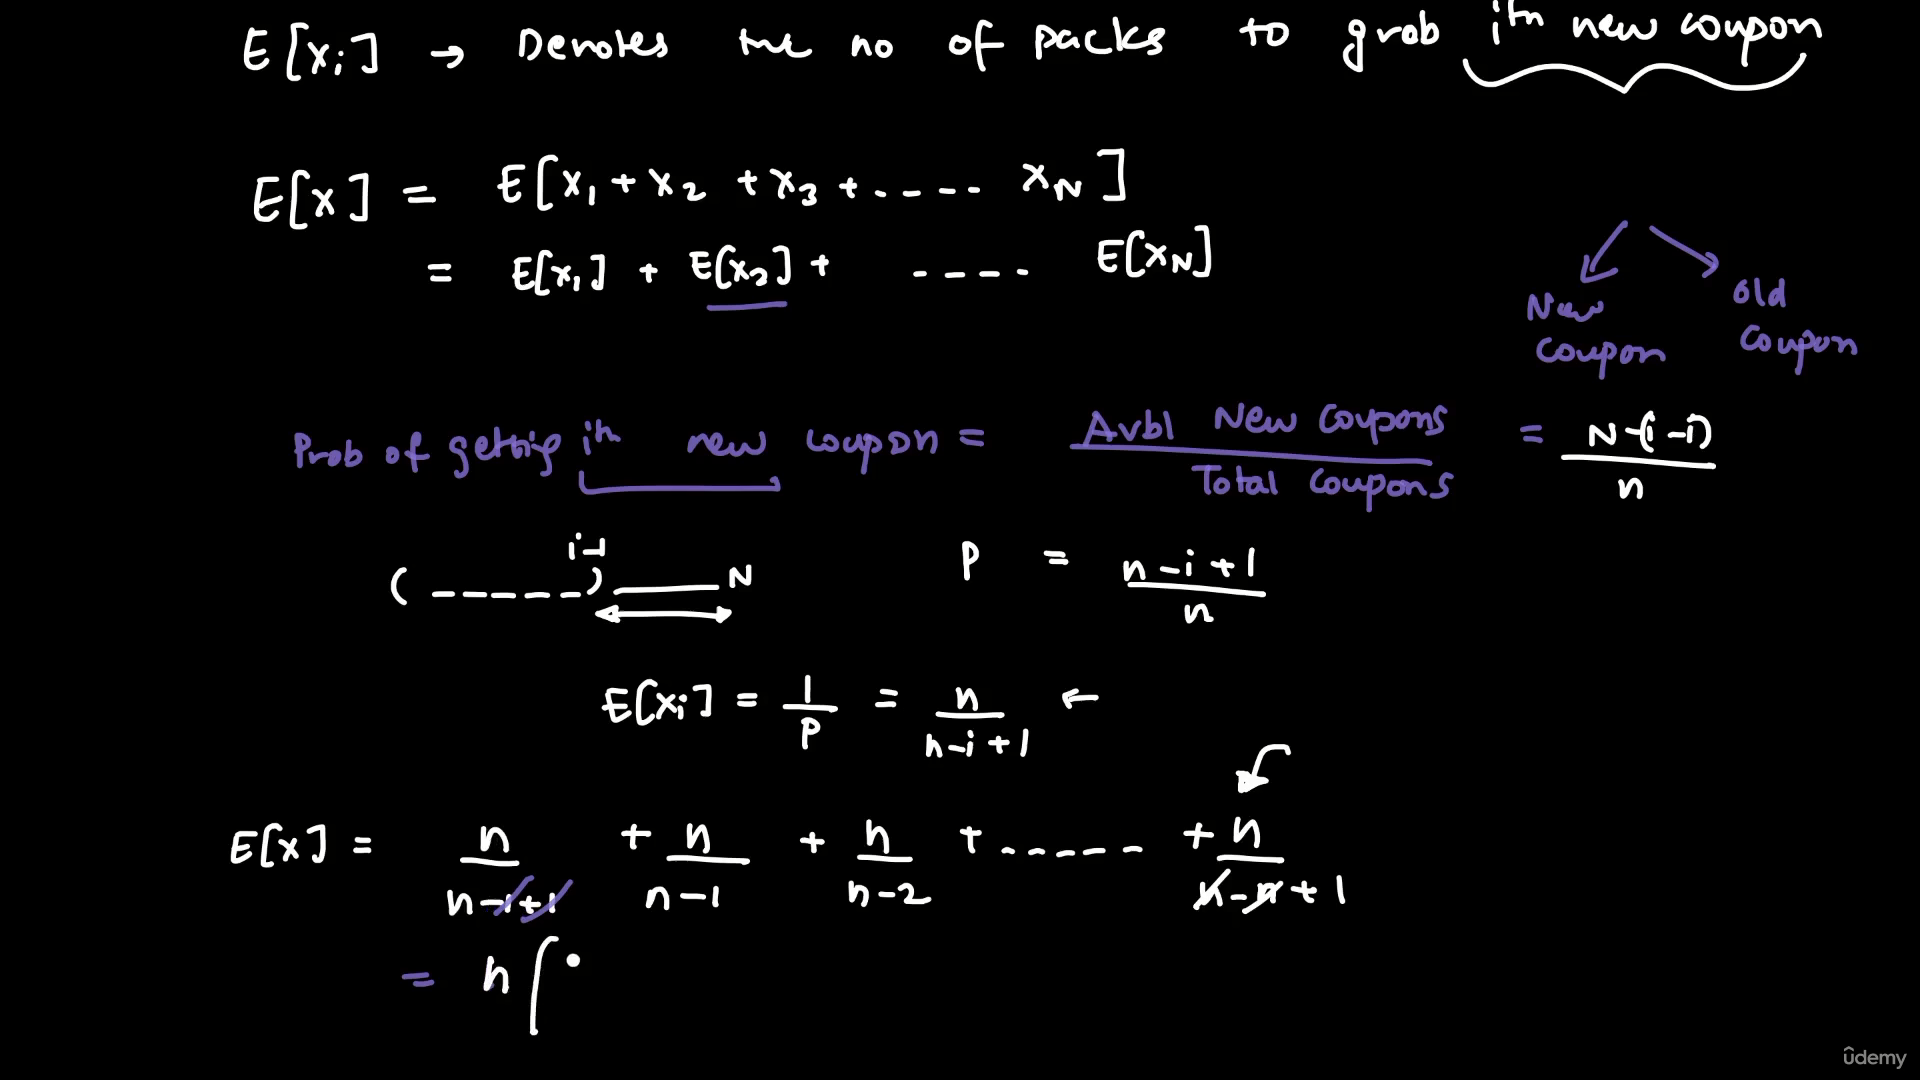 E[xi] → Denotes the no of packs to grab ith new coupon
E[x] = E[x1 + x2 + x3 + .---- xN]
= E[x1] + E[x2] + ---- E[xN]
New coupon
Old coupon
Prob of gettig ith new coupon = Avbl New Coupons / Total Coupons = N-(i-i) / n
( ------ ) i-1 N
P = n-i+1 / n
E[xi] = 1/P = n / n-i+1 ←
E[x] = n / n-1+1 + n / n-1 + n / n-2 + .----- + n / n-n+1
= n [
ûdemy